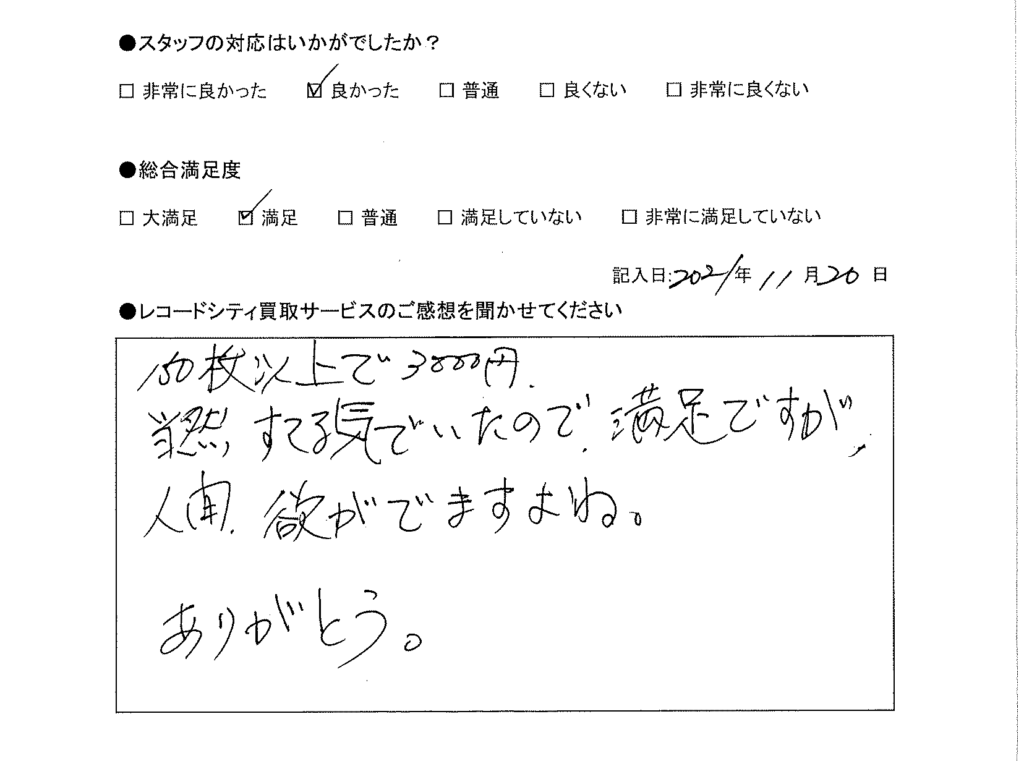 ●スタッフの対応はいかがでしたか？
□ 非常に良かった ☑ 良かった □ 普通 □ 良くない □ 非常に良くない
●総合満足度
□ 大満足 ☑ 満足 □ 普通 □ 満足していない □ 非常に満足していない
記入日:2021年 11月20日
●レコードシティ買取サービスのご感想を聞かせてください
150枚以上で3000円.
当然、すてる気でいたので、満足ですが、
人間、欲がでますよね。
ありがとう。